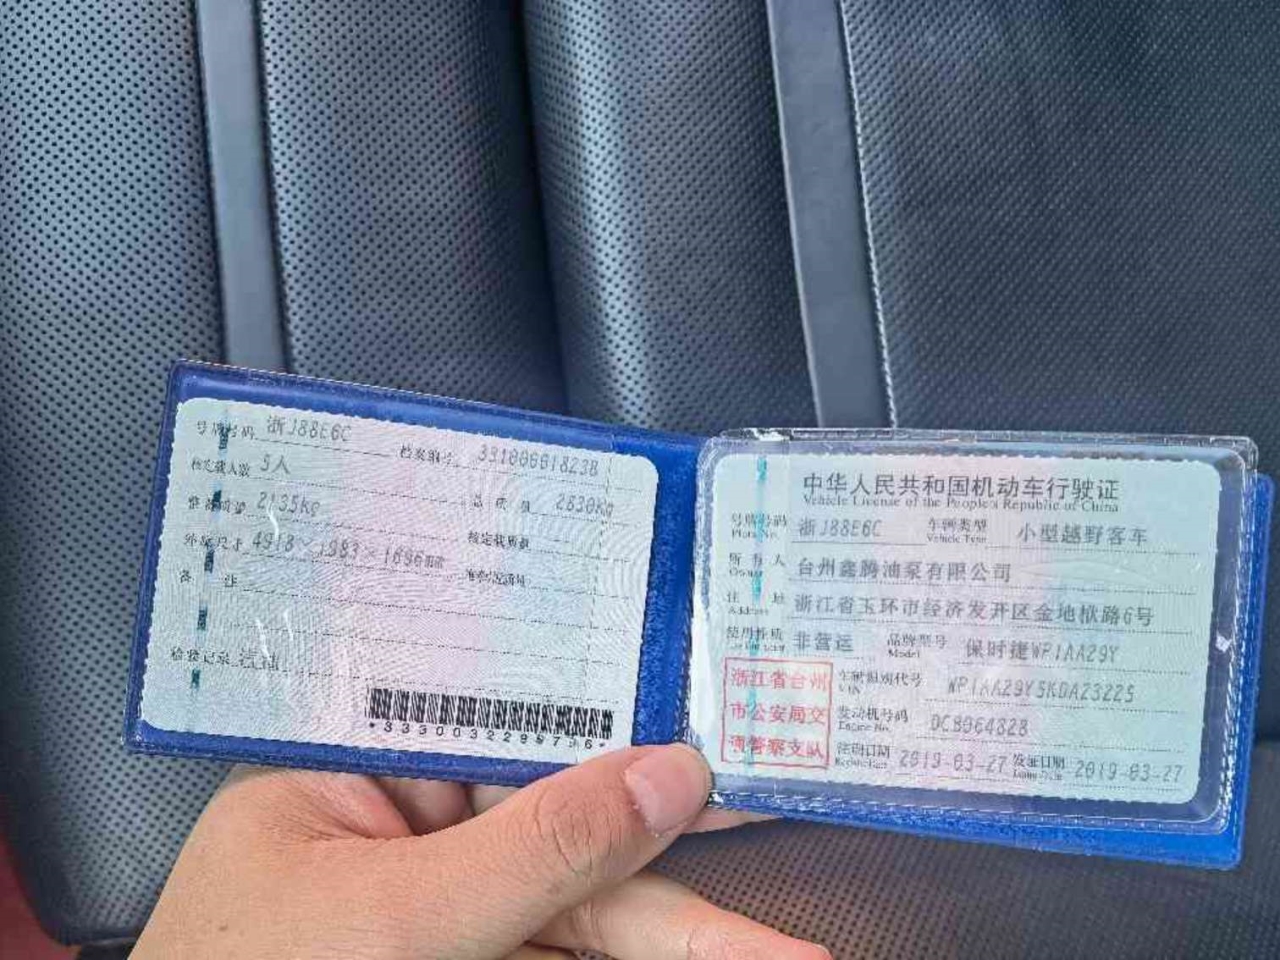 号牌号码 浙J88E6C 档案编号 331000018238
核定载人数 5人 总质量 2830Kg
整备质量 2135Kg 核定载质量
外廓尺寸 4918×1983×1696mm 准牵引总质量
备 注
检验记录
*3330032299796*
中华人民共和国机动车行驶证
Vehicle License of the People's Republic of China
号牌号码 浙J88E6C 车辆类型 小型越野客车
Plate No. Vehicle Type
所有人 台州鑫腾油泵有限公司
Owner
住 址 浙江省玉环市经济发开区金地楸路6号
Address
使用性质 非营运 品牌型号 保时捷WP1AA29Y
Use Character Model
浙江省台州 车辆识别代号 WP1AA29Y5KDA23225
VIN
市公安局交 发动机号码 DCB064828
Engine No.
通警察支队 注册日期 2019-03-27 发证日期 2019-03-27
Register Date Issue Date